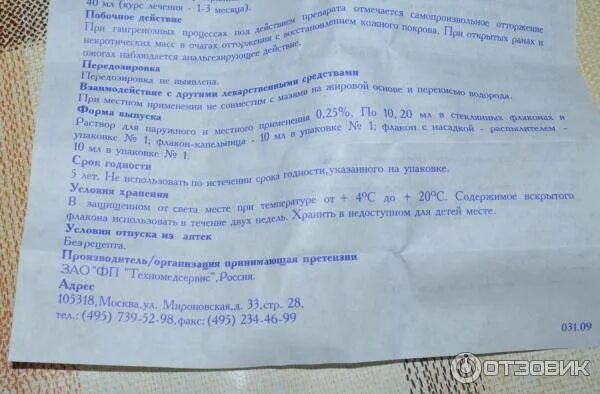 40 мл (курс лечения - 1-3 месяца).
Побочное действие
При гангренозных процессах под действием препарата отмечается самопроизвольное отторжение
некротических масс в очагах отторжения с восстановлением кожного покрова. При открытых ранах и
ожогах наблюдается анальгезирующее действие.
Передозировка
Передозировка не выявлена.
Взаимодействие с другими лекарственными средствами
При местном применении не совместим с мазями на жировой основе и перекисью водорода.
Форма выпуска
Раствор для наружного и местного применения 0,25%. По 10, 20 мл в стеклянных флаконах в
упаковке № 1; флакон-капельница - 10 мл в упаковке № 1; флакон с насадкой - распылителем -
10 мл в упаковке № 1.
Срок годности
5 лет. Не использовать по истечении срока годности, указанного на упаковке.
Условия хранения
В защищенном от света месте при температуре от + 4°С до + 20°С. Содержимое вскрытого
флакона использовать в течение двух недель. Хранить в недоступном для детей месте.
Условия отпуска из аптек
Без рецепта.
Производитель/организация принимающая претензии
ЗАО"ФП "Техномедсервис",Россия.
Адрес
105318,Москва,ул. Мироновская,д. 33,стр. 28,
тел.: (495) 739-52-98,факс: (495) 234-46-99
031.09
ОТЗОВИК